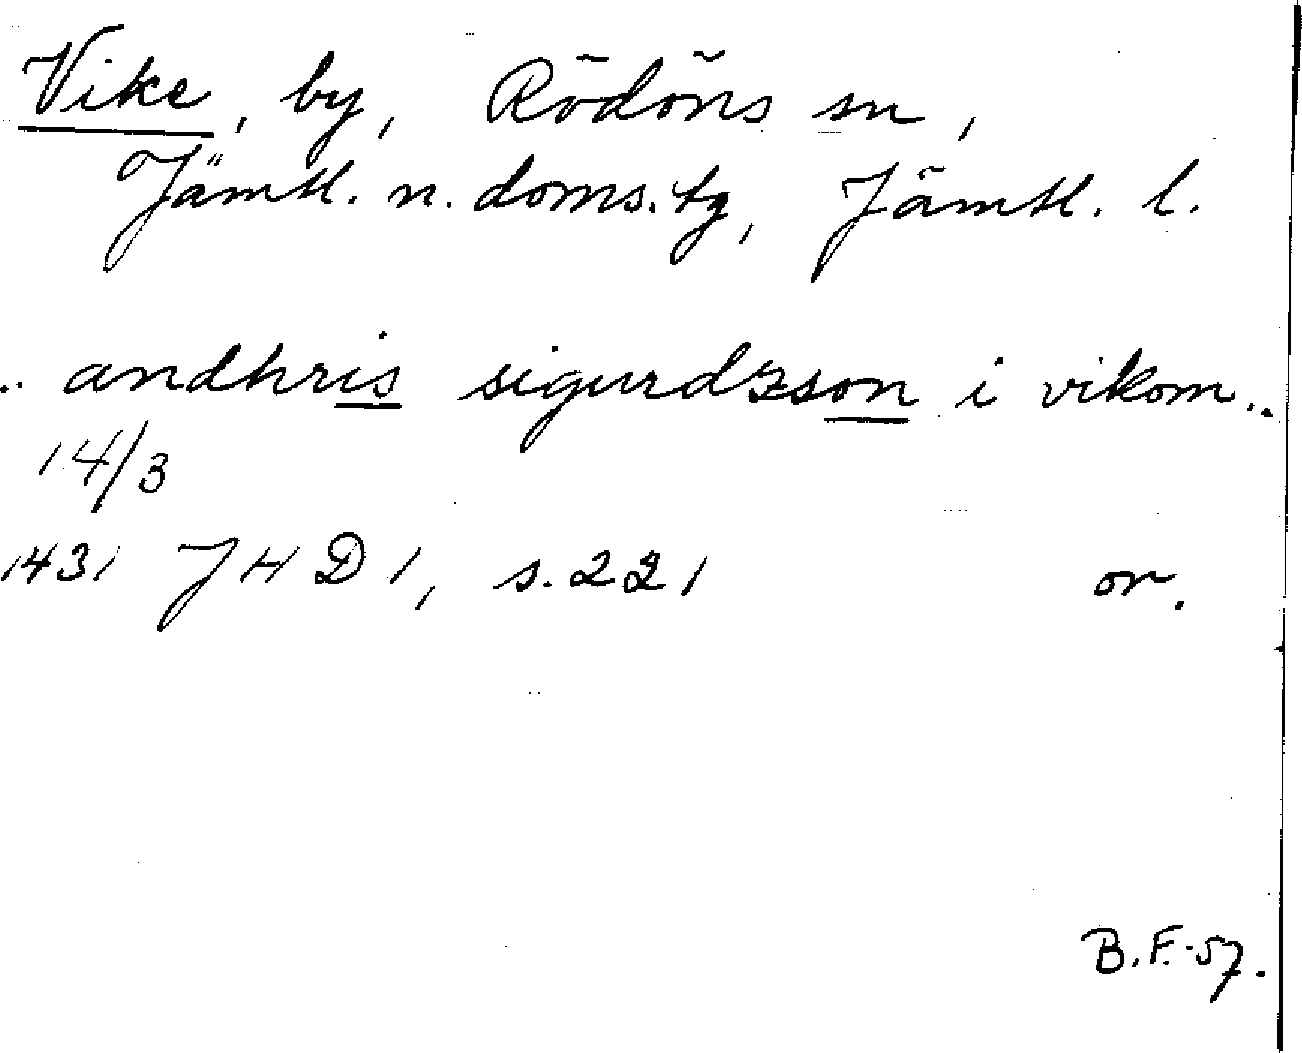 Vike, by, Rödöns sn,
Jämtl. n. doms. tg, Jämtl. l.
.. andhris sigurdzson i vikom ..
14/3
1431 JHD 1, s. 221 or.
B.F.-57.